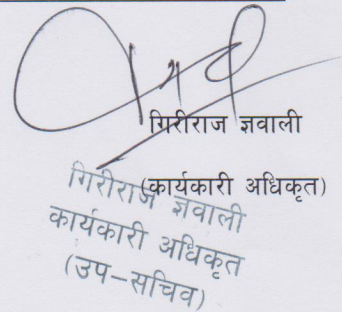 गिरीराज ज्ञवाली
(कार्यकारी अधिकृत)
गिरीराज ज्ञवाली
कार्यकारी अधिकृत
(उप-सचिव)